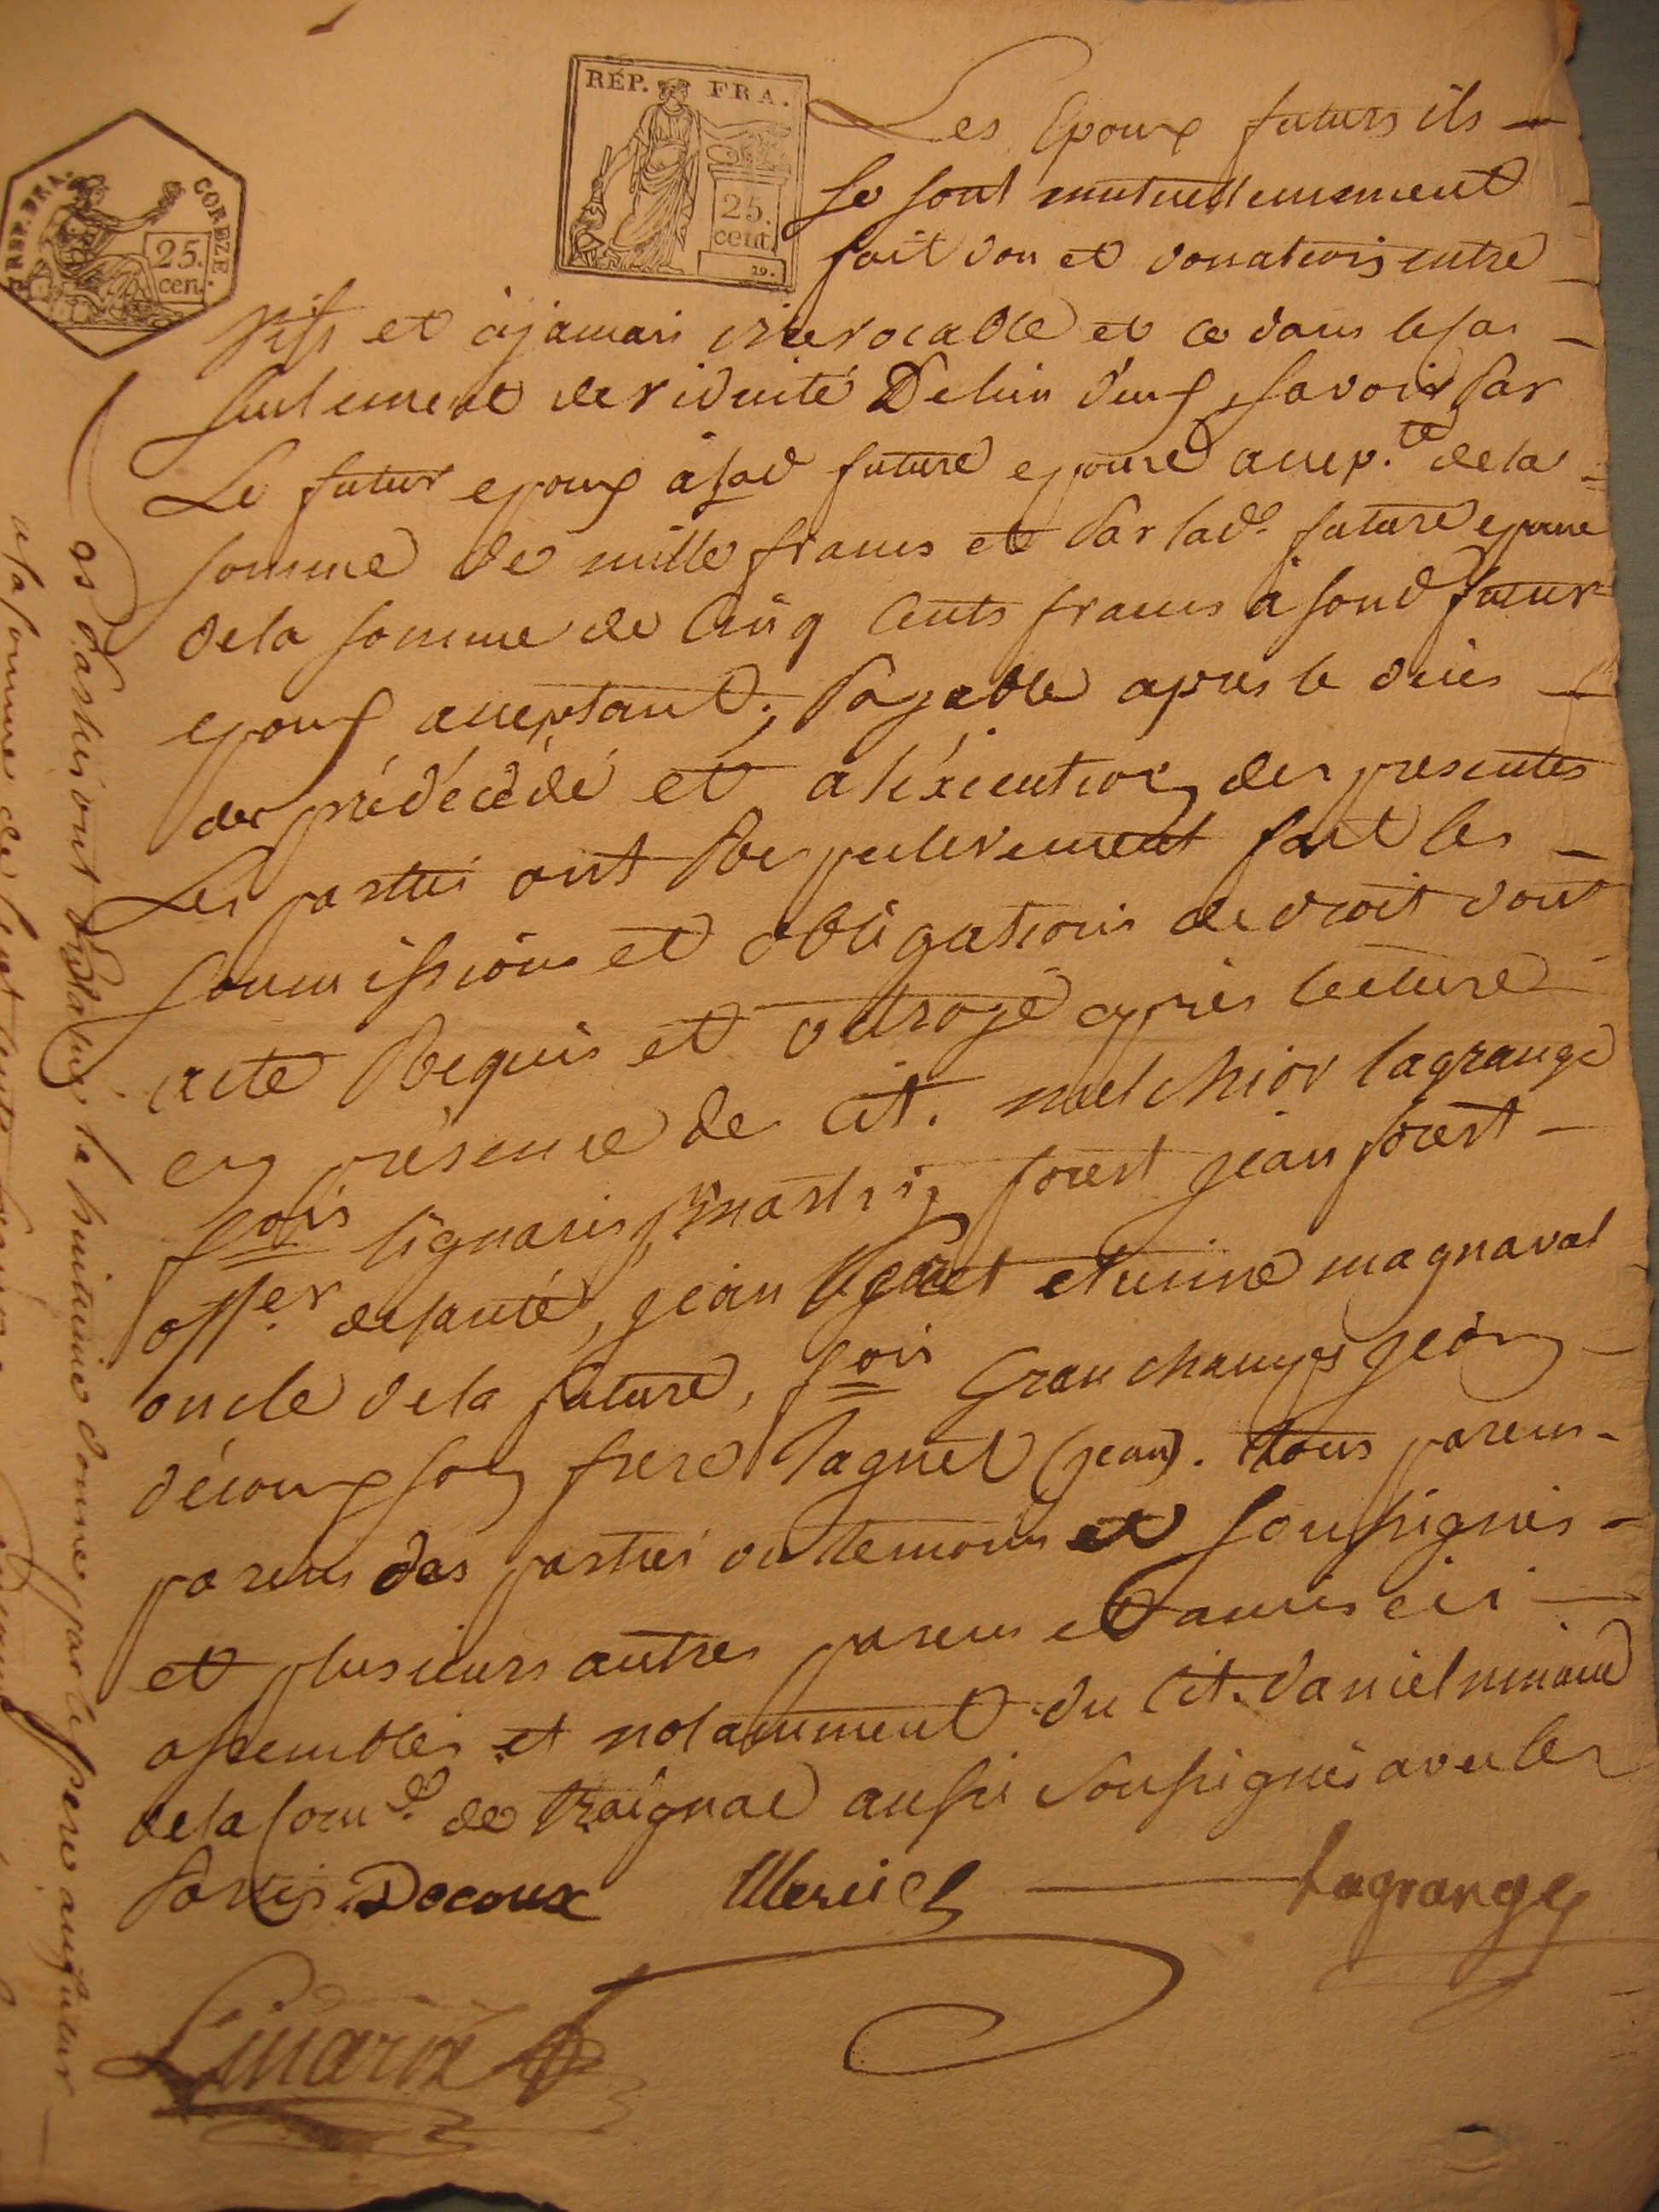 RÉP. FRA.
25.
cent.
RÉP. FRA. CORÈZE
25.
cen.
Les Epoux futurs ils
se sont mutuellemement
fait don et donations entre
vifs et à jamais irrevocable et ce dans le cas
seulement de viduité De lun deux, savoir par
Le futur epoux a lad future epouse accep.te de la
somme de mille francs et par lad.e future epouse
de la somme de Cinq Cents francs a sond futur
epoux acceptant, payable apres le déces
du prédécédé et a l'éxécution des presentes
Les parties ont Respectivement fait les
soumissions et obligations de droit dont
acte Requis et octroyé après lecture
en présence de Cit. melchior lagrange
fcois martin forest jean forest
offer de santé, jean etienne magnaval
oncle de la future, fcois Granchamps jean
découx son frere Pagnet (jean). tous parens
parens des parties ou temoins et soussignés
et plusieurs autres parens et amis ici
assemblés et notamment du Cit. daniel
de la Com.e de Traignac aussi soussigné avec les
Parties Decoux Meriel Lagrange
Linarix
Les Parties ont Declaré la huitaine donnée par le pere au futur